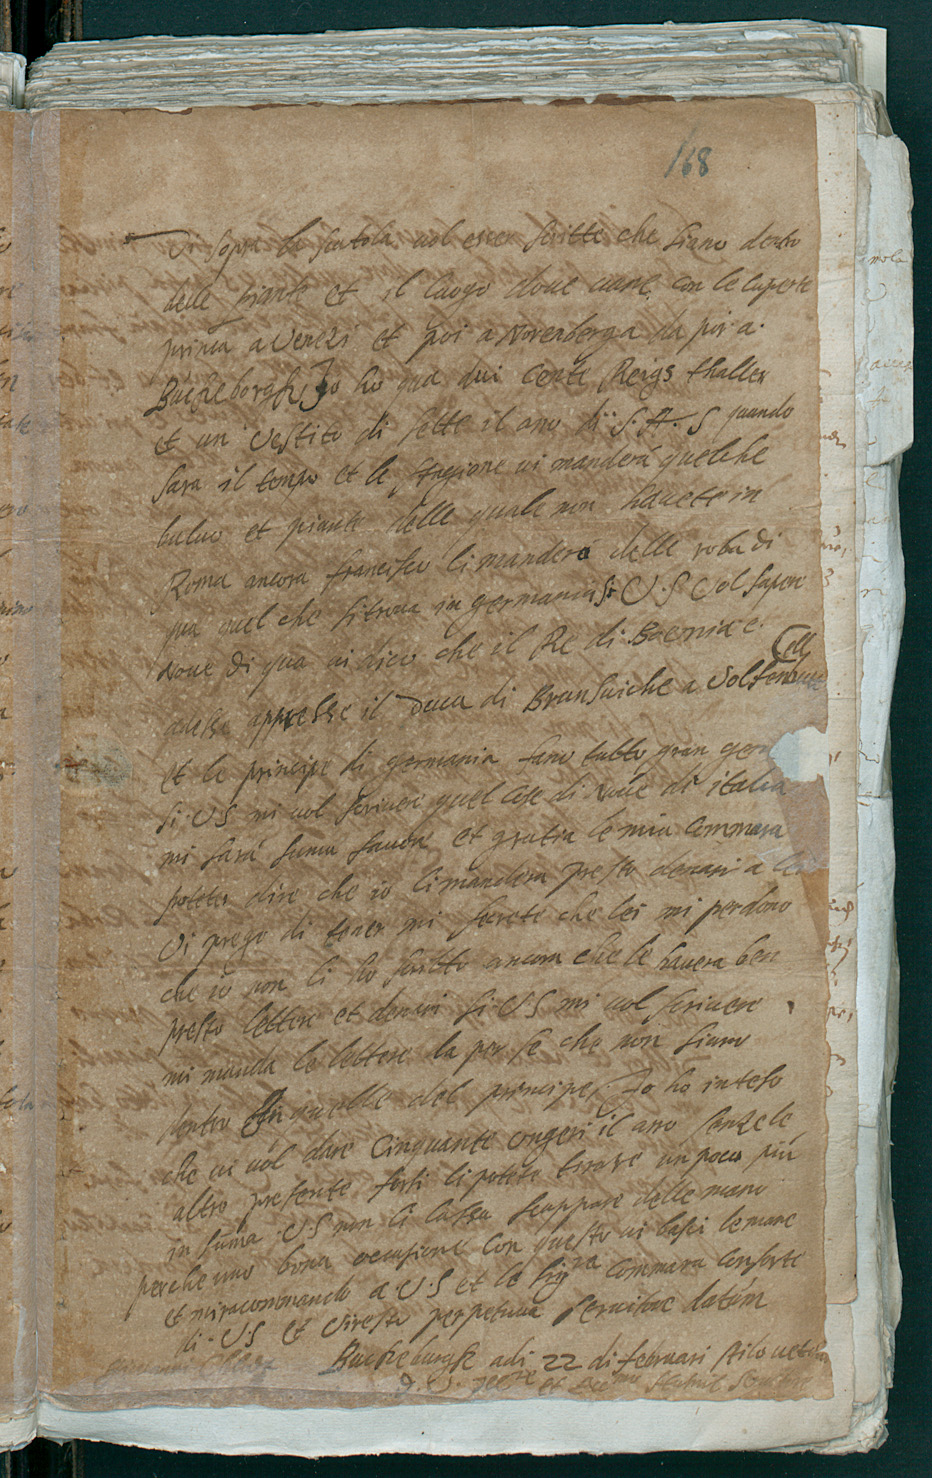 168
sopra la scatola vol esser scritte che siano dentro
delle piante et il luogo dove viene con le coperte
prima a Venezi et poi a Norenberga da poi a
Buckeborgk Io ho qua dui cente Reigs thaller
et un vestito di sette il ano di S. A. S quando
sara il tempo et le stagione vi mandera quelche
bulvo et piante delle quale non havete in
Roma ancora francisco li manderà delle roba di
qua quel che si trova in germania Si V.S vol saper
nove di qua vi dico che il Re di Boemia e
adesse appresse il Duca di Brunsuiche a Volfen
et le principe di germania fano tutto gran
si V S mi vol scrivere quel cose di nove di italia
mi sarà suma favor et gratia le mia Commara
potete dire che io li mandera presto denari a
Vi prego di tener mi secrete che lei mi perdono
che io non li ho scritto ancora che le havera ben
presto lettere et denari Si V S mi vol scrivere
mi manda le lettere la per se che non siano
dentro quelle del principe Io ho inteso
che vi vol dare Cinquante ongeri il ano senze le
altre presente forsi li potete tirare un poco più
in suma V S non li lassa scappare delle mano
perche uno bona occasione Con questo vi basci le mane
et mi racommando a V.S et le sig.ra Commara Consorte
di V.S et vi resto perpetuo servitor datum
Buckeburgk adi 22 di februari stilo